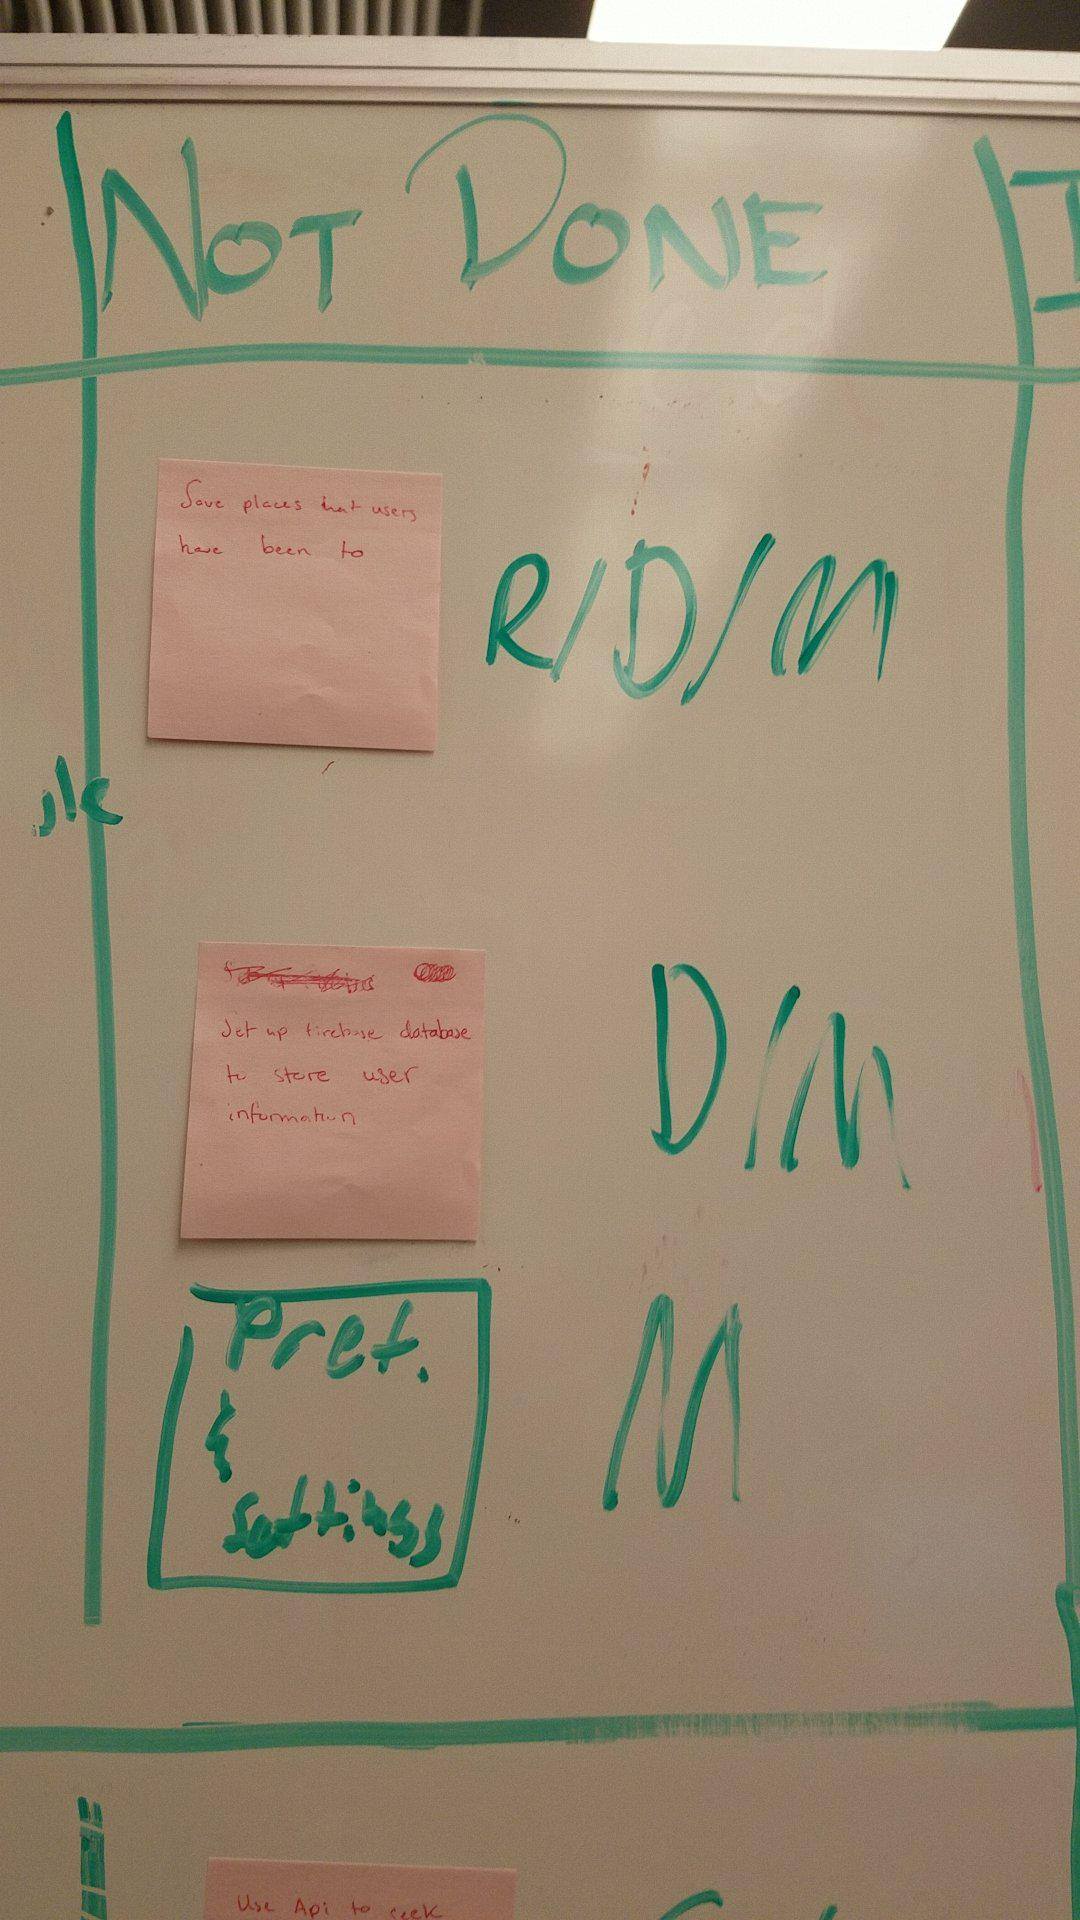 NOT DONE
Save places that users
have been to
R/D/M
Set up firebase database
to store user
information
D/M
Pref.
&
Settings
M
Use Api to seek